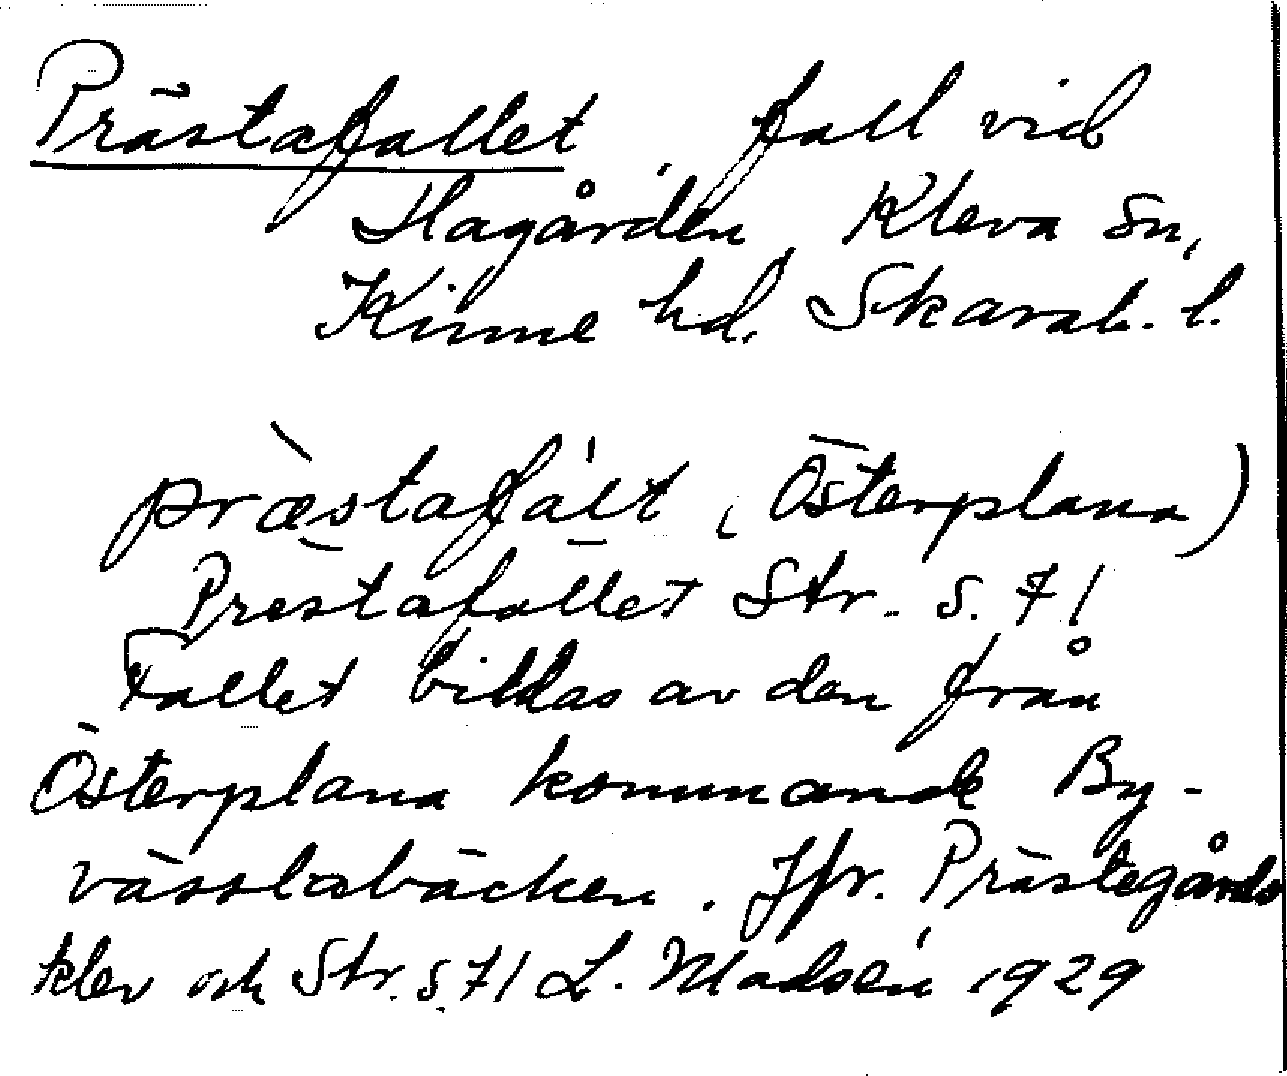 Prästafallet, fall vid
Hagården, Kleva sn,
Kinne hd. Skarab. l.
præ̀stafált (Österplana)
Prestafallet Str. s. 71
Fallet bildas av den från
Österplana kommande By-
vässlabäcken. Jfr. Prästegårds
klev och Str. s. 71 L. Madsén 1929